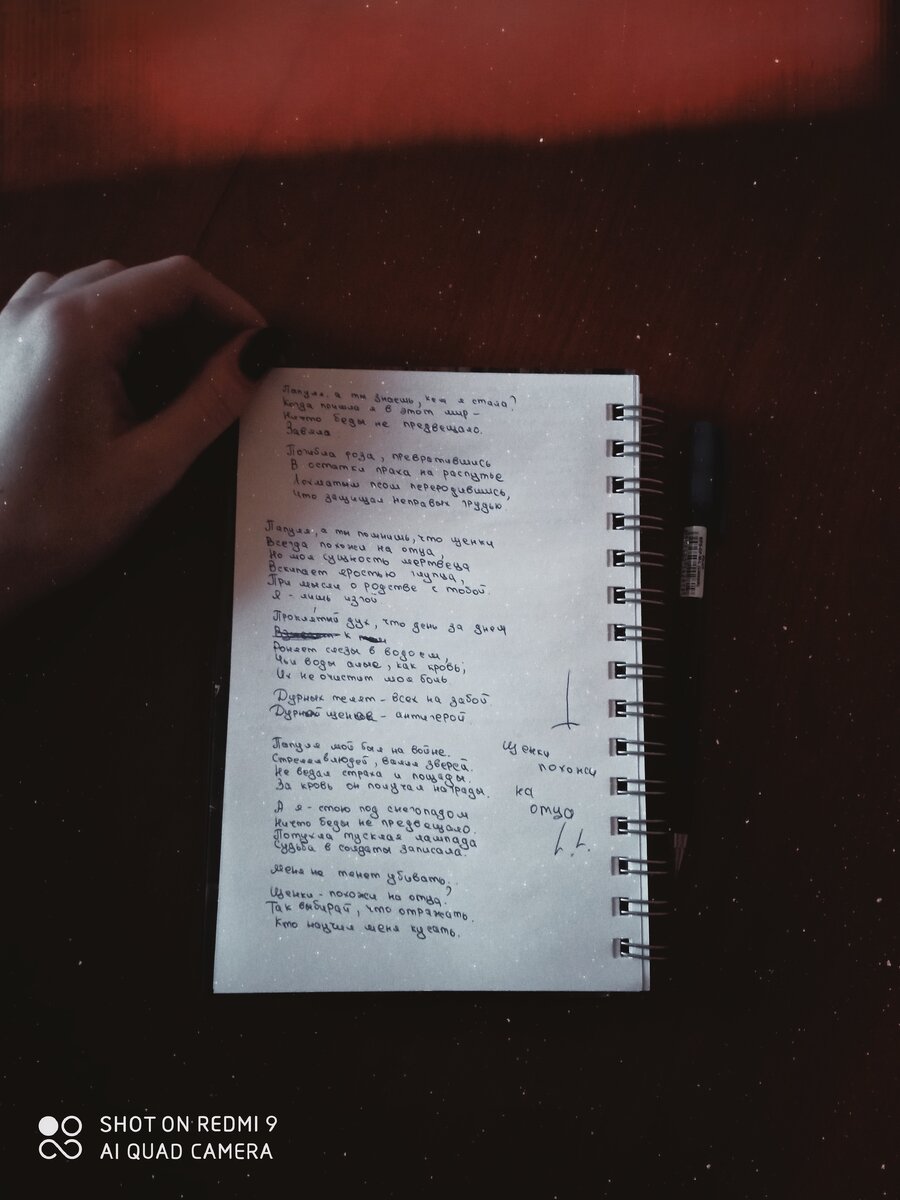 Папуля, а ты знаешь, кем я стала?
Когда пришла я в этот мир -
Ничто беды не предвещало.
Завяла
Погибла роза, превратившись
В остатки праха на распутье
Лохматым псом переродившись,
Что защищал неправых грудью
Папуля, а ты помнишь, что щенки
Всегда похожи на отца,
Но моя сущность мертвеца
Вскипает яростью глупца,
При мысли о родстве с тобой.
Я - лишь изгой
Проклятый дух, что день за днем
к
Роняет слезы в водоем,
Чьи воды алые, как кровь;
Их не очистит моя боль.
Дурных телят - всех на забой
Дурной щенок - антигерой
Папуля мой был на войне.
Стрелял людей, валил зверей.
Не ведал страха и пощады.
За кровь он получал награды.
А я - стою под снегопадом
Ничто беды не предвещало.
Потухла тусклая лампада
Судьба в солдаты записала.
Меня не тянет убивать,
Щенки - похожи на отца?
Так выбирай, что отряжать.
Кто научил меня кусать.
Щенки
похожи
на
отца
SHOT ON REDMI 9
AI QUAD CAMERA